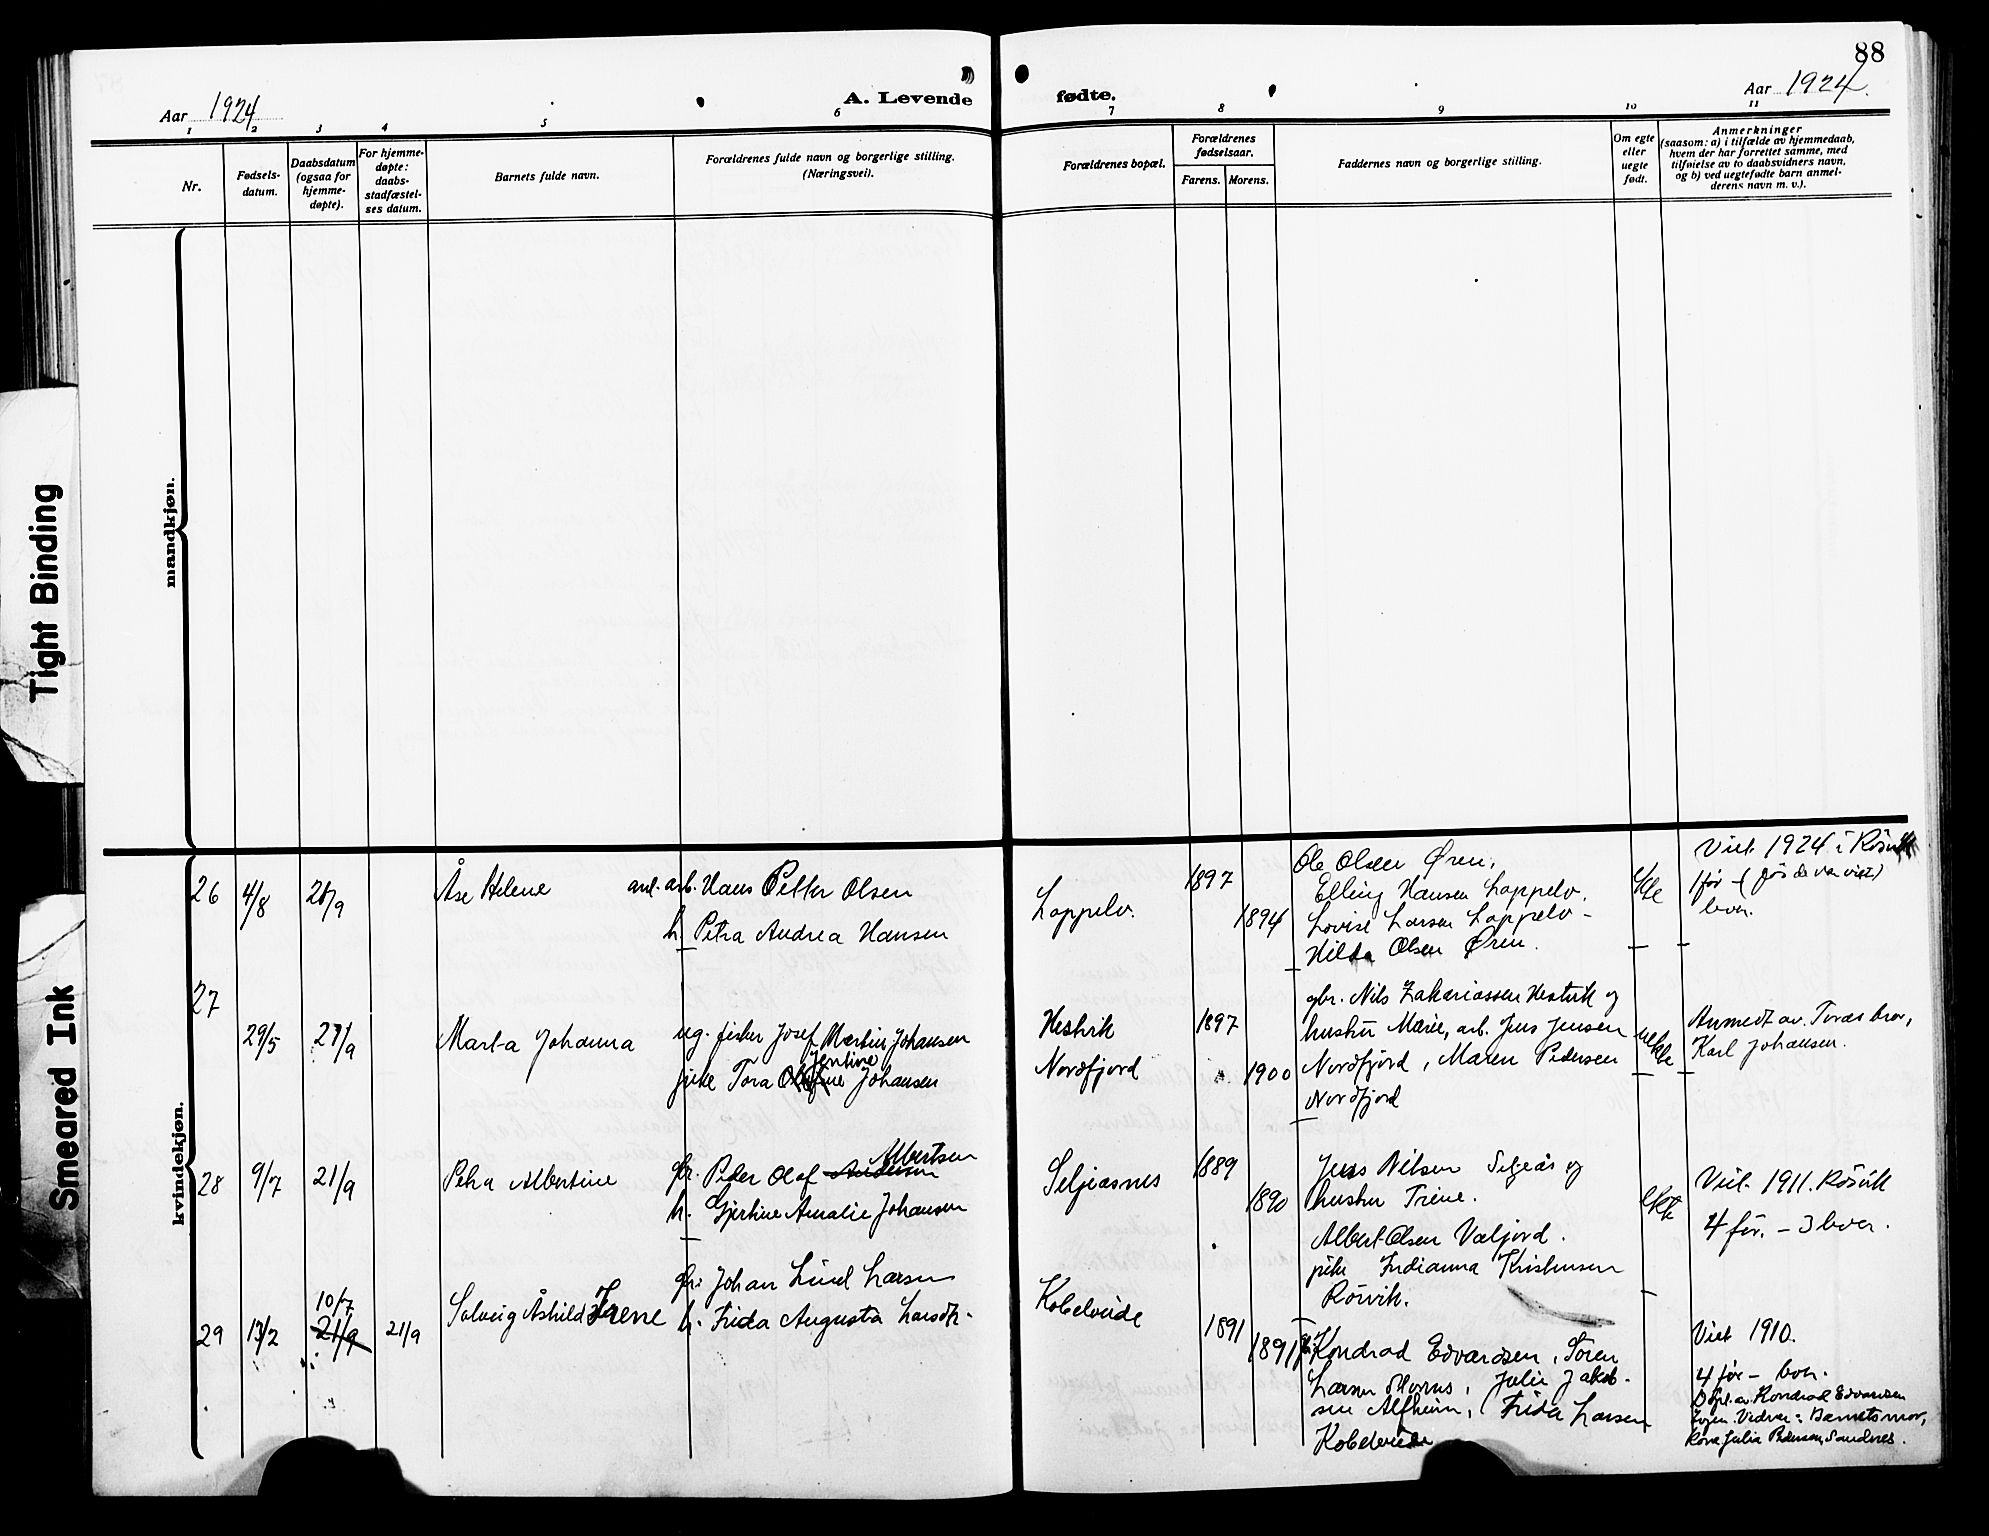 88
Aar 1924
A. Levende fødte.
Aar 1924.
1 2 3 4 5 6 7 8 9 10 11
Nr.
Fødsels-
datum.
Daabsdatum
(ogsaa for
hjemme-
døpte).
For hjemme-
døpte:
daabs-
stadfæstel-
ses datum.
Barnets fulde navn.
Forældrenes fulde navn og borgerlige stilling.
(Næringsvei).
Forældrenes bopæl.
Forældrenes
fødselsaar.
Farens. Morens.
Faddernes navn og borgerlige stilling.
Om egte
eller
uegte
født.
Anmerkninger
(saasom: a) i tilfælde av hjemmedaab,
hvem der har forrettet samme, med
tilføielse av to daabsvidners navn,
og b) ved uegtefødte barn anmel-
derens navn m. v.).
mandkjøn.
kvindekjøn.
Tight Binding
Smeared Ink
26 4/8 21/9 Åse Helene
arb. Hans Petter Olsen
h. Petra Andrea Hansen
Loppelv.
1897
1894
Ole Olsen Øren,
Elling Hansen Loppelv.
Lovise Larsen Loppelv -
Hilda Olsen Øren.
Viet 1924 i Rösvik
1 før - (før de var viet)
lever.
27
29/5 21/9 Marta Johanna
ug. fisker Josef Martin Johansen
Jentine
pike Tora Johansen
Hestvik
Nordfjord
1897
1900
gbr. Nils Zakariassen Hestvik og
hustru Marie, arb. Jens Jensen
Nordfjord, Maren Pedersen
Nordfjord
uekte
Anmeldt av Toras bror,
Karl Johansen.
28 9/7 21/9 Petra Albertine
Albertsen
gbr. Peder Olaf Andersen
h. Gjertine Amalie Johansen
Seljeåsnes
1889
1890
Jens Nilsen Seljeås og
hustru Trine.
Albert Olsen Valjord.
pike Indianna Kristensen
Rösvik.
ekte
Viet 1911. Rösvik
4 før. - 3 lever.
29 13/2 10/7
21/9
21/9 Solveig Åshild Irene
gbr. Johan Lind Larsen
h. Frida Augusta Larsdtr.
Kobelveide
1891
1891
Kondrad Edvardsen, Sören
Larsen Mornes, Julie Jakob-
sen Alfheim, Frida Larsen
Kobelveide
Viet 1910.
4 før - lever.
Døpt av Kondrad Edvardsen
Vidner: Barnets mor,
Kone Julia Pedersen, Sandnes.